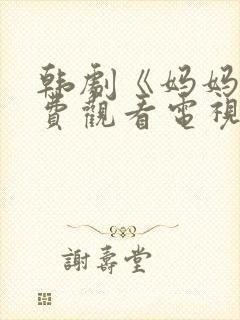 韩劇《妈妈
費觀看電視
謝壽堂